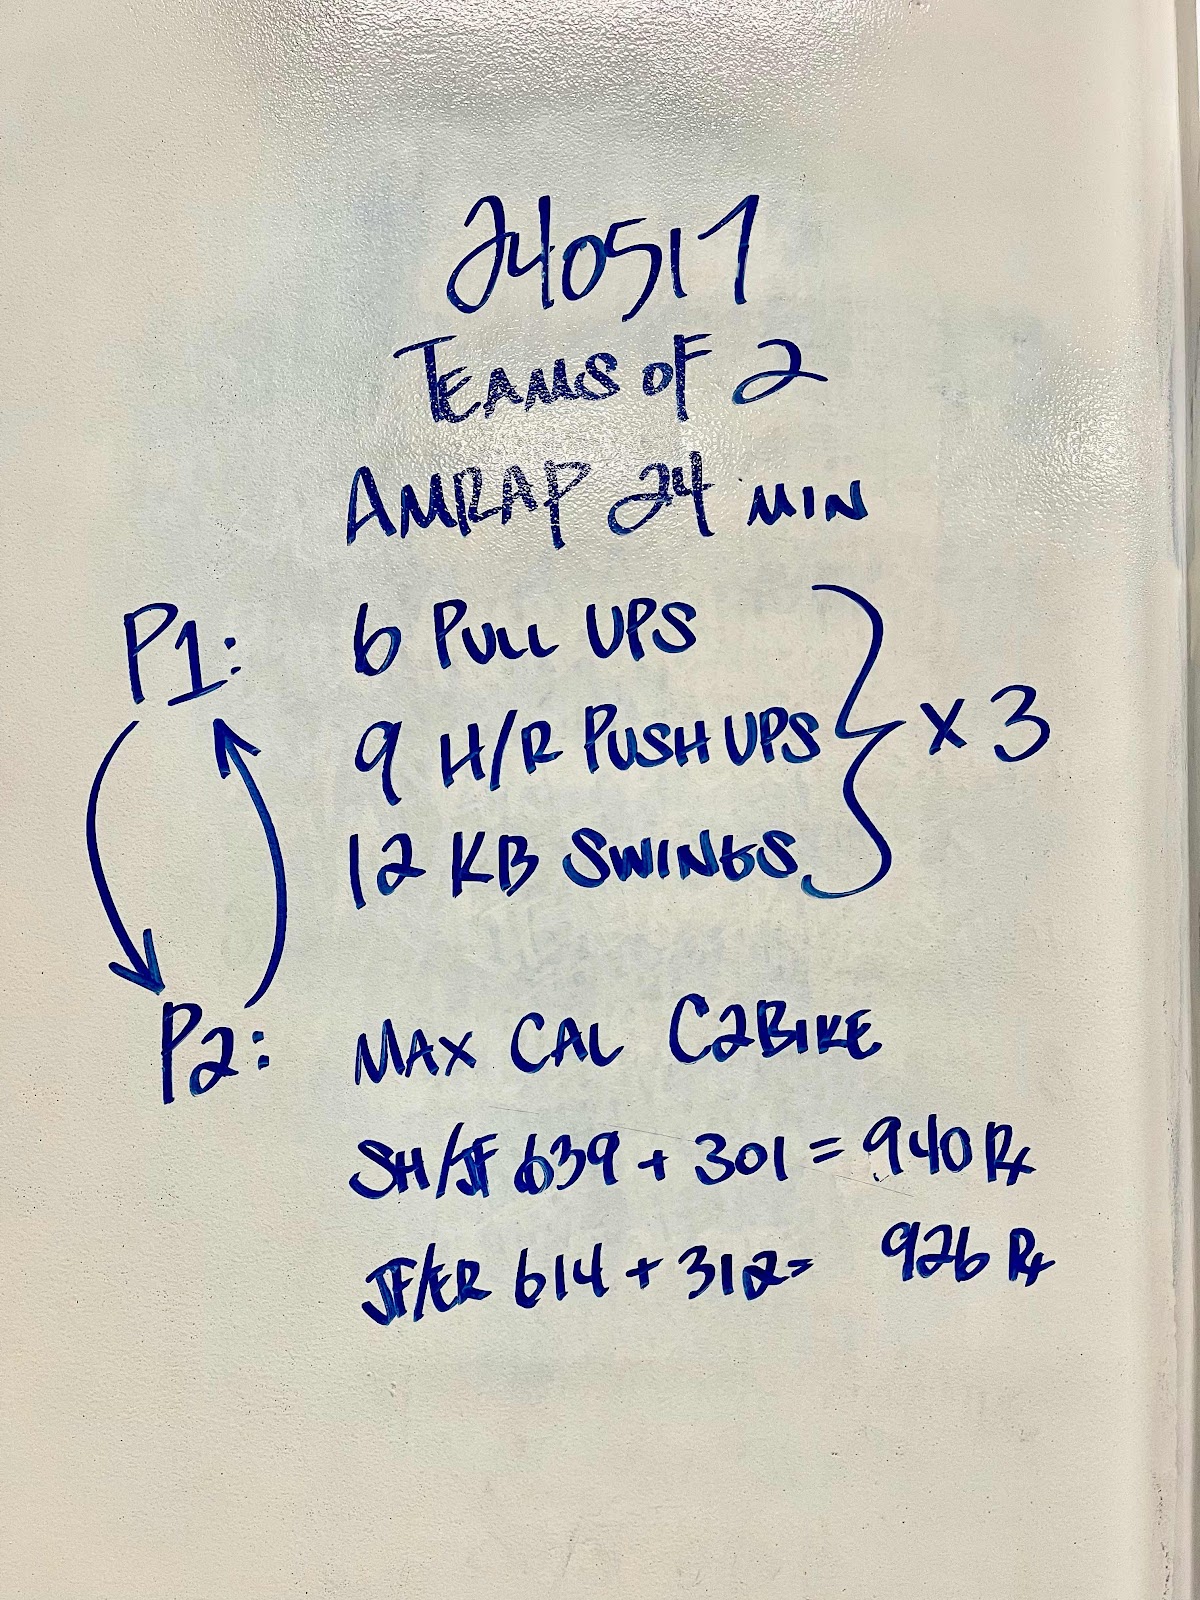 240517
TEAMS OF 2
AMRAP 24 MIN
P1: 6 PULL UPS
9 H/R PUSH UPS } x 3
12 KB SWINGS
P2: MAX CAL C2BIKE
SH/JF 639 + 301 = 940 Rx
JF/ER 614 + 312 = 926 Rx